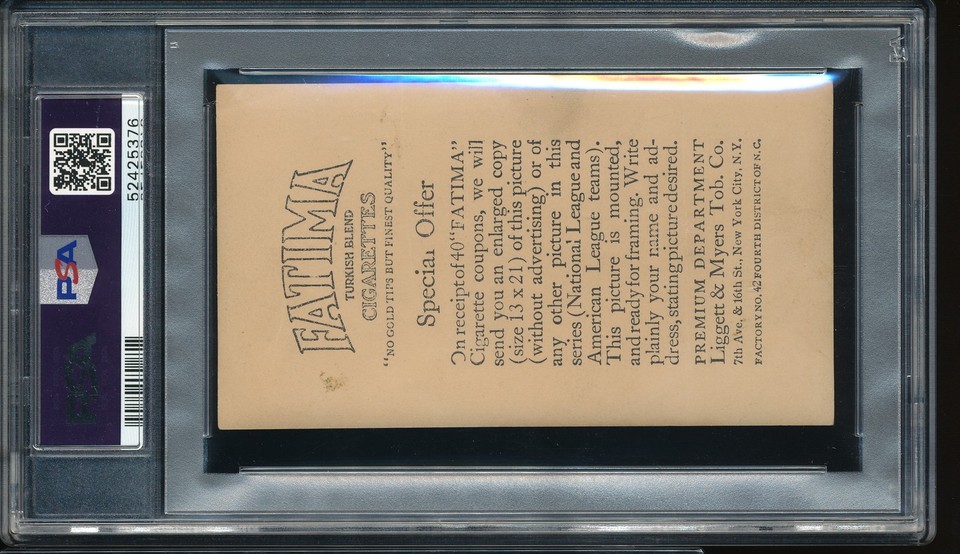 52425376
PSA
FATIMA
TURKISH BLEND
CIGARETTES
"NO GOLD TIPS BUT FINEST QUALITY"
Special Offer
On receipt of 40 "FATIMA"
Cigarette coupons, we will
send you an enlarged copy
(size 13 x 21) of this picture
(without advertising) or of
any other picture in this
series (National League and
American League teams).
This picture is mounted,
and ready for framing. Write
plainly your name and ad-
dress, stating picture desired.
PREMIUM DEPARTMENT
Liggett & Myers Tob. Co.
7th Ave, & 16th St., New York City, N.Y.
FACTORY NO. 42 FOURTH DISTRICT OF N.C.